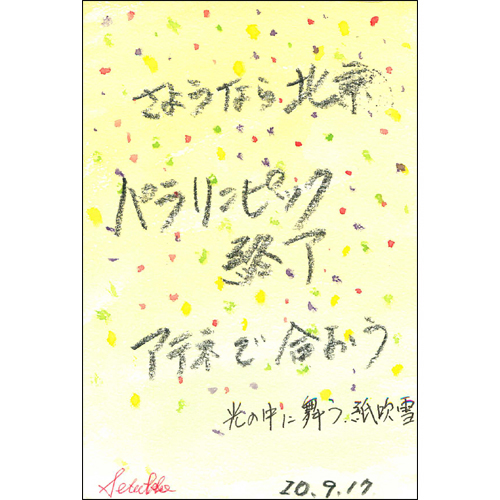 さようなら北京
パラリンピック
終了
アテネで合おう
光の中に舞う紙吹雪
20.9.17